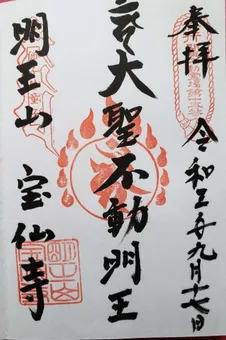 奉拝
令和五年九月十七日
大聖不動明王
明王山
宝仙寺